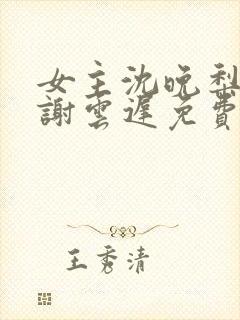 女主沈晚梨
謝雲遲免費
王秀清